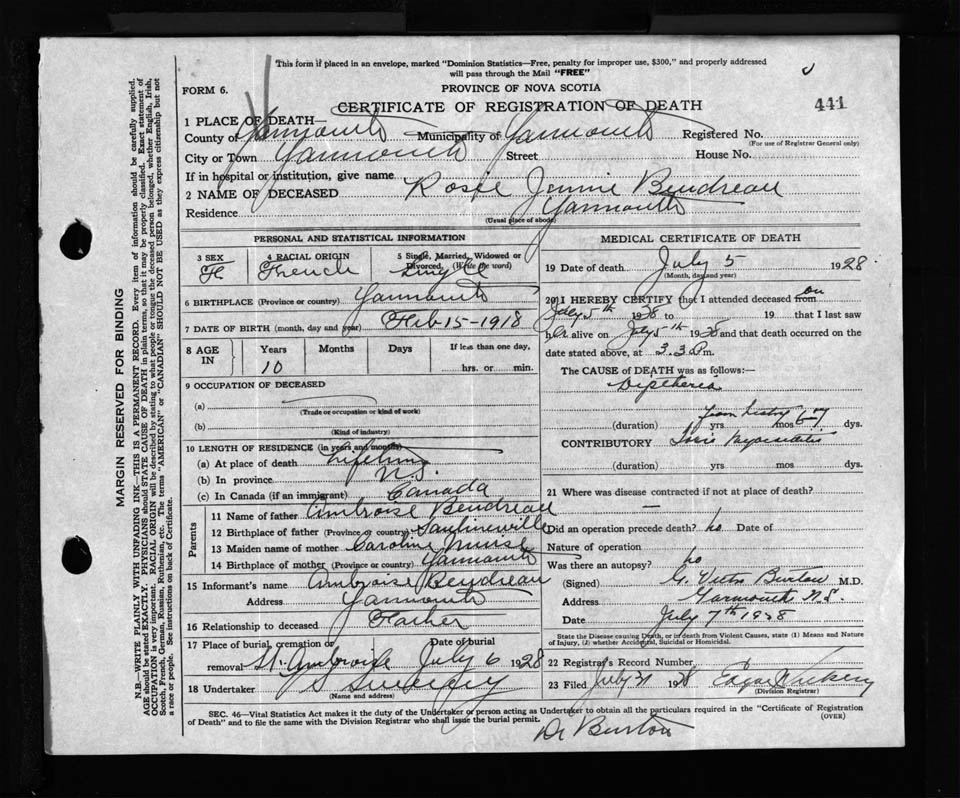 This form if placed in an envelope, marked "Dominion Statistics—Free, penalty for improper use, $300," and properly addressed
will pass through the Mail "FREE"
FORM 6.
PROVINCE OF NOVA SCOTIA
CERTIFICATE OF REGISTRATION OF DEATH
441
1 PLACE OF DEATH—
County of Yarmouth Municipality of Yarmouth Registered No.
(For use of Registrar General only)
City or Town Yarmouth Street House No.
If in hospital or institution, give name
2 NAME OF DECEASED Rosie Jennie Bendreau
Residence Yarmouth
(Usual place of abode)
PERSONAL AND STATISTICAL INFORMATION
3 SEX 4 RACIAL ORIGIN 5 Single, Married, Widowed or Divorced, (Write the word)
F French Single
6 BIRTHPLACE (Province or country) Yarmouth
7 DATE OF BIRTH (month, day and year) Feb 15-1918
8 AGE IN Years Months Days If less than one day,
10 hrs. or min.
9 OCCUPATION OF DECEASED
(a)
(Trade or occupation or kind of work)
(b)
(Kind of industry)
10 LENGTH OF RESIDENCE (in years and months)
(a) At place of death Lifetime
(b) In province N.S.
(c) In Canada (if an immigrant) Canada
Parents
11 Name of father Ambroise Bendreau
12 Birthplace of father (Province or country)
13 Maiden name of mother Caroline Muise
14 Birthplace of mother (Province or country) Yarmouth
15 Informant's name Ambroise Bendreau
Address Yarmouth
16 Relationship to deceased Father
17 Place of burial, cremation or removal Date of burial
St. Ambroise July 6 1928
18 Undertaker Sweeny
(Name and address)
MEDICAL CERTIFICATE OF DEATH
19 Date of death July 5 1928
(Month, day and year)
20 I HEREBY CERTIFY that I attended deceased from on
July 5th 1928 to 19 that I last saw
her alive on July 5th 1928 and that death occurred on the
date stated above, at 3.30 Pm.
The CAUSE of DEATH was as follows:—
Diptheria
from history 6-7
(duration) yrs mos dys.
CONTRIBUTORY Toxic Myocarditis
(duration) yrs mos dys.
21 Where was disease contracted if not at place of death?
—
Did an operation precede death? no Date of
Nature of operation
Was there an autopsy? no
(Signed) G. Victor Burton M.D.
Address Yarmouth N.S.
Date July 7th 1928
State the Disease causing Death, or in death from Violent Causes, state (1) Means and Nature
of Injury, (2) whether Accidental, Suicidal or Homicidal.
22 Registrar's Record Number
23 Filed July 31 1928
(Division Registrar)
SEC. 46—Vital Statistics Act makes it the duty of the Undertaker or person acting as Undertaker to obtain all the particulars required in the "Certificate of Registration
of Death" and to file the same with the Division Registrar who shall issue the burial permit. (OVER)
Dr Burton
MARGIN RESERVED FOR BINDING
N.B.—WRITE PLAINLY WITH UNFADING INK—THIS IS A PERMANENT RECORD. Every item of information should be carefully supplied.
AGE should be stated EXACTLY. PHYSICIANS should STATE CAUSE OF DEATH in plain terms, so that it may be properly classified. Exact statement of
OCCUPATION is very important. RACIAL ORIGIN will be described by stating to what people or tongue the deceased person belonged, whether English, Irish,
Scotch, French, German, Russian, Ruthenian, etc. The terms "AMERICAN" or "CANADIAN" SHOULD NOT BE USED as they express citizenship but not
a race or people. See instructions on back of Certificate.